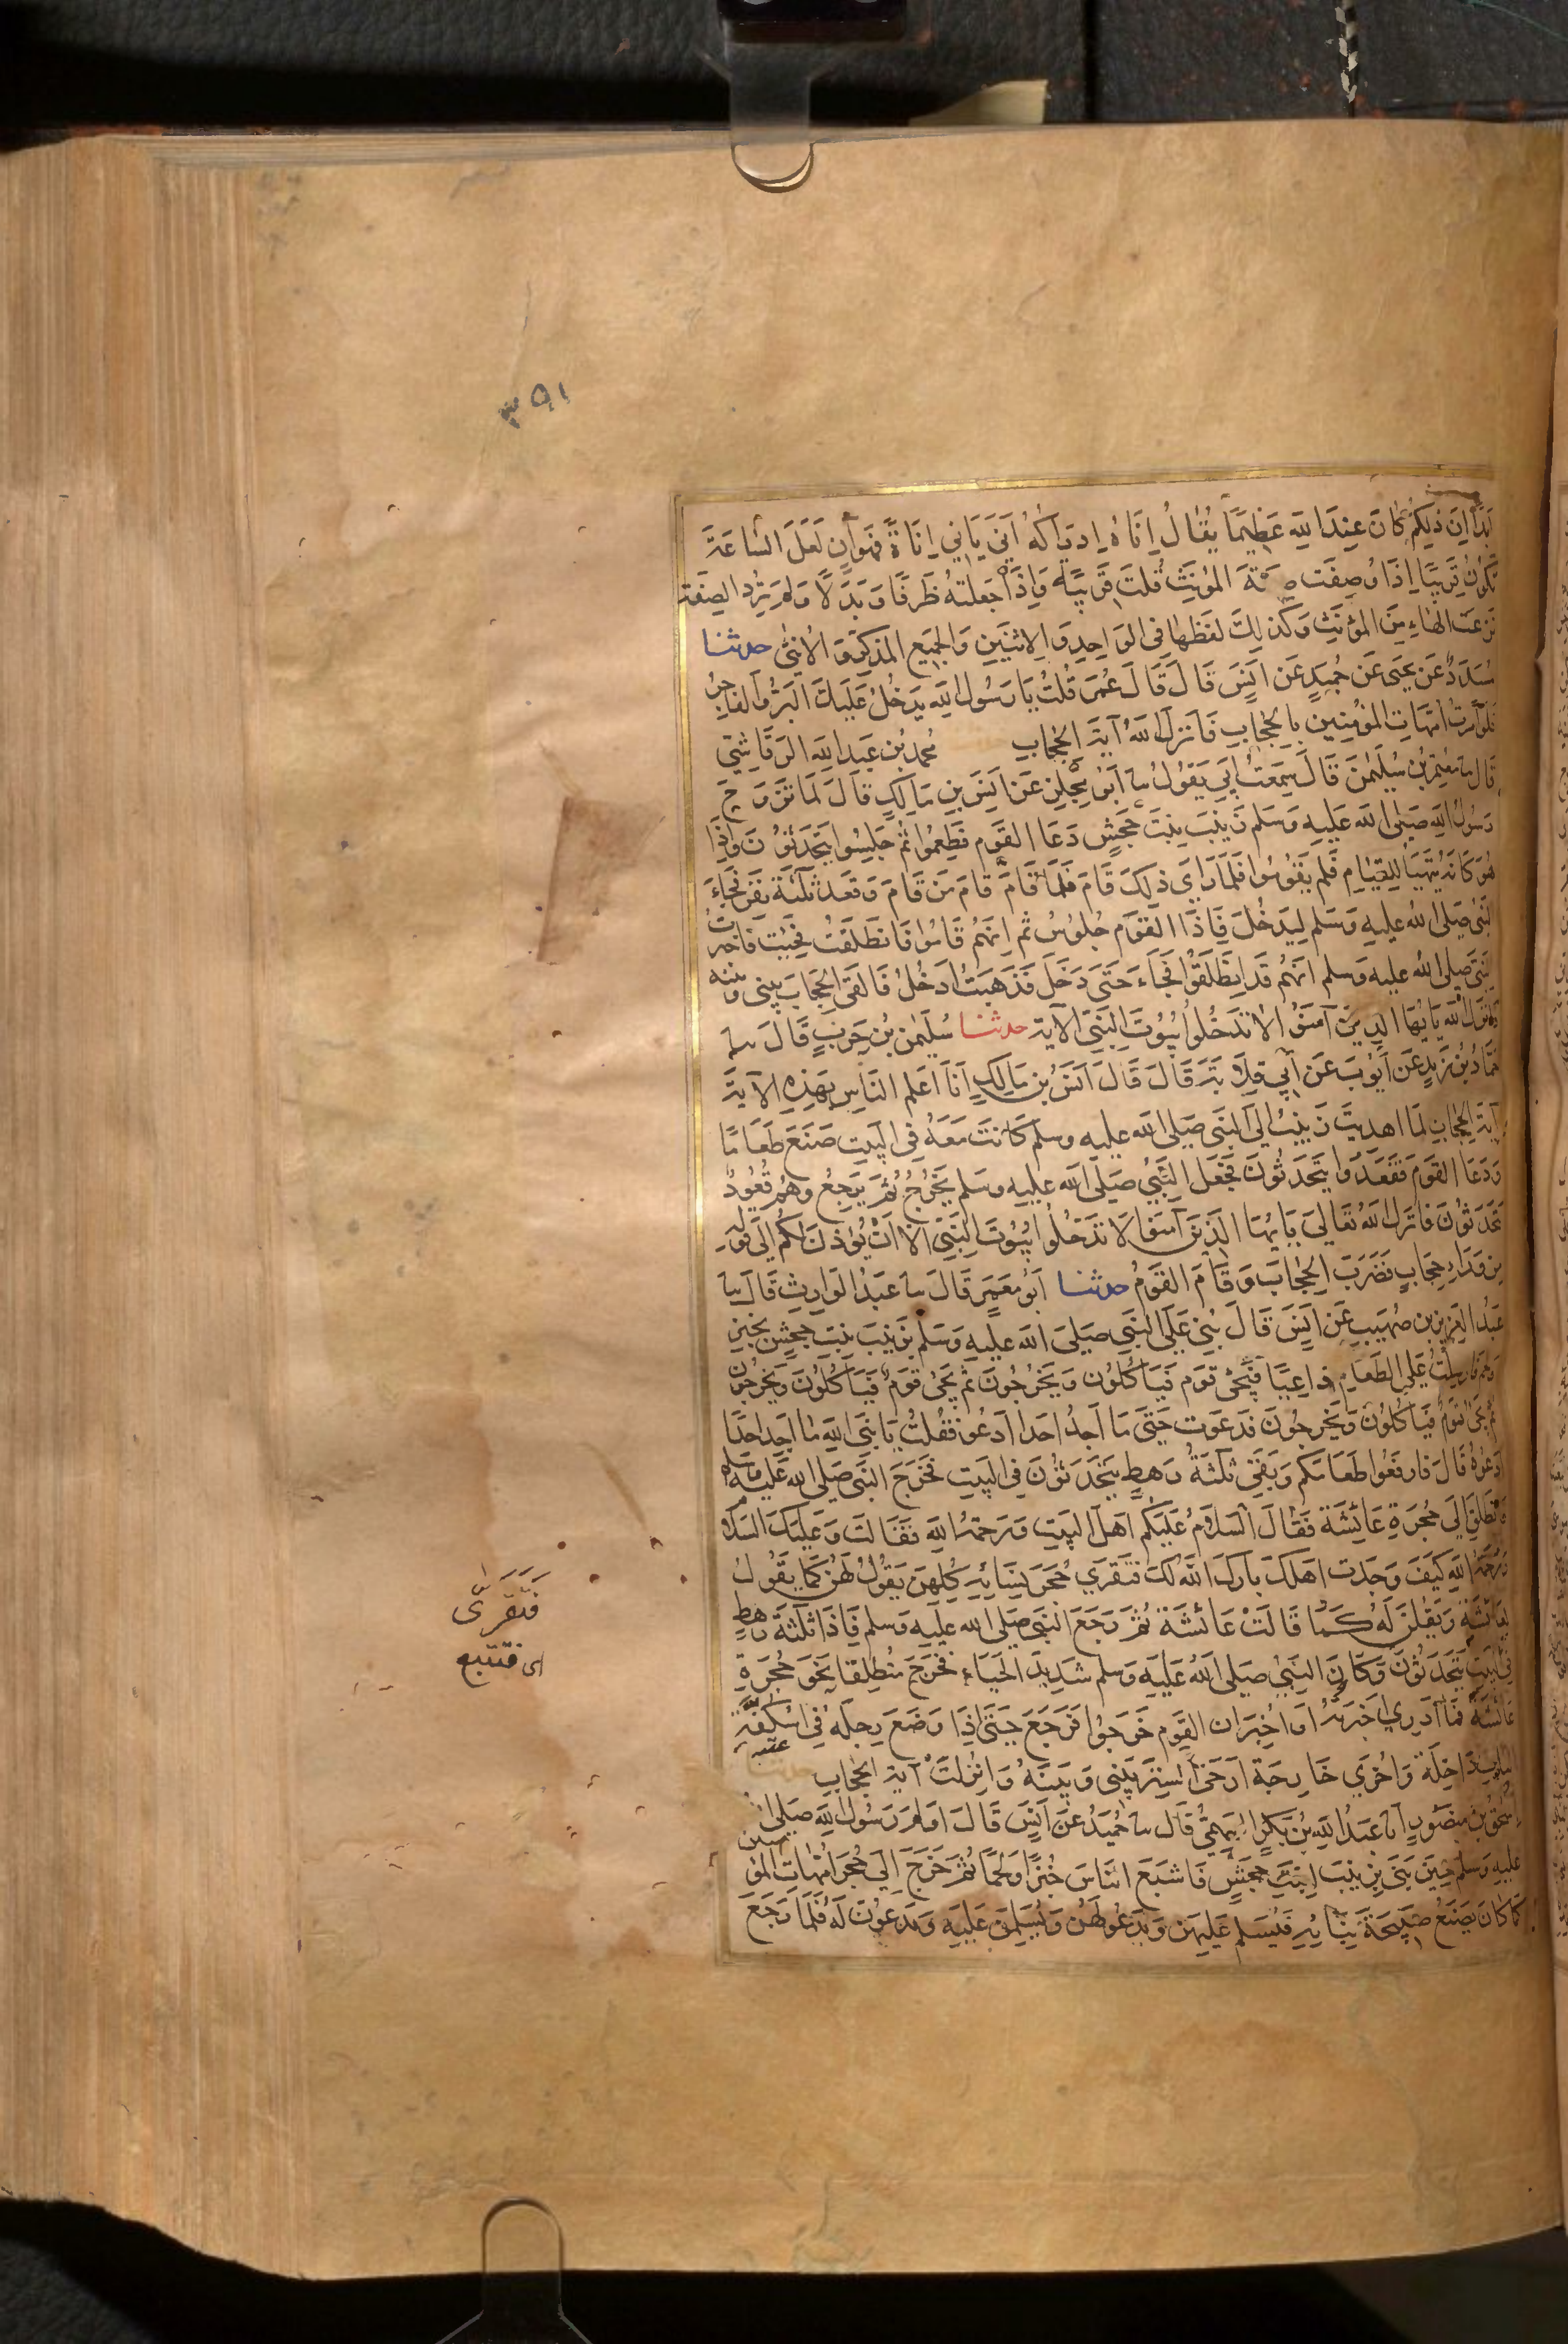 ٣٥١
اَبَدًا اِنَّ ذٰلِكُمْ كَانَ عِنْدَ اللّٰهِ عَظِيمًا يُقَالُ اِنَاهُ اِدْرَاكُهُ اَنَى يَأنِي اِنَاةً فَهُوَ اٰنٍ لَعَلَّ السَّاعَةَ
تَكُونُ قَرِيبًا اِذَا وُصِفَتْ صِفَةَ المُؤَنَّثِ قُلْتَ قَرِيبَةً وَاِذَا جَعَلْتَهُ ظَرْفًا وَبَدَلًا وَلَمْ تُرِدِ الصِّفَةَ
نَزَعْتَ الْهَاءَ مِنَ المُؤَنَّثِ وَكَذٰلِكَ لَفْظُهَا فِى الوَاحِدِ وَالِاثْنَيْنِ وَالْجَمِيعِ المُذَكَّرِ وَالْاُنْثٰى حدثنا
مُسَدَّدٌ عَنْ يَحْيَى عَنْ حُمَيدٍ عَنْ اَنَسٍ قَالَ قَالَ عُمَرُ قُلْتُ يَا رَسُولَ اللّٰهِ يَدْخُلُ عَلَيْكَ البَرُّ وَالْفَاجِرُ
فَلَوْ اَمَرْتَ اُمَّهَاتِ المُؤْمِنِينَ بِالْحِجَابِ فَاَنْزَلَ اللّٰهُ آيَةَ الْحِجَابِ مُحَمَّدُ بْنُ عَبْدِ اللّٰهِ الرَّقَاشِيُّ
قَالَ ثنا مُعْتَمِرُ بْنُ سُلَيْمٰنَ قَالَ سَمِعْتُ اَبِي يَقُولُ ثنا اَبُو مِجْلَزٍ عَنْ اَنَسِ بْنِ مَالِكٍ قَالَ لَمَّا تَزَوَّجَ
رَسُولُ اللّٰهِ صَلَّى اللّٰهُ عَلَيْهِ وَسَلَّمَ زَيْنَبَ بِنْتَ جَحْشٍ دَعَا الْقَوْمَ فَطَعِمُوا ثُمَّ جَلَسُوا يَتَحَدَّثُونَ وَاِذَا
هُوَ كَاَنَّهُ يَتَهَيَّأُ لِلْقِيَامِ فَلَمْ يَقُومُوا فَلَمَّا رَاَى ذٰلِكَ قَامَ فَلَمَّا قَامَ قَامَ مَنْ قَامَ وَقَعَدَ ثَلٰثَةُ نَفَرٍ فَجَاءَ
النَّبِيُّ صَلَّى اللّٰهُ عَلَيْهِ وَسَلَّمَ لِيَدْخُلَ فَاِذَا الْقَوْمُ جُلُوسٌ ثُمَّ اِنَّهُمْ قَامُوا فَانْطَلَقْتُ فَجِئْتُ فَاَخْبَرْتُ
النَّبِيَّ صَلَّى اللّٰهُ عَلَيْهِ وَسَلَّمَ اَنَّهُمْ قَدِ انْطَلَقُوا فَجَاءَ حَتَّى دَخَلَ فَذَهَبْتُ اَدْخُلُ فَاَلْقَى الْحِجَابَ بَيْنِى وَبَيْنَهُ
فَاَنْزَلَ اللّٰهُ يَا اَيُّهَا الَّذِينَ آمَنُوا لَا تَدْخُلُوا بُيُوتَ النَّبِيِّ الْآيَةَ حدثنا سُلَيْمٰنُ بْنُ حَرْبٍ قَالَ ثنا
حَمَّادُ بْنُ زَيْدٍ عَنْ اَيُّوبَ عَنْ اَبِي قِلَابَةَ قَالَ قَالَ اَنَسُ بْنُ مَالِكٍ اَنَا اَعْلَمُ النَّاسِ بِهَذِهِ الْآيَةِ
آيَةِ الْحِجَابِ لَمَّا اُهْدِيَتْ زَيْنَبُ اِلَى النَّبِيِّ صَلَّى اللّٰهُ عَلَيْهِ وسَلَّمَ كَانَتْ مَعَهُ فِى الْبَيْتِ صَنَعَ طَعَامًا
وَدَعَا الْقَوْمَ فَقَعَدُوا يَتَحَدَّثُونَ فَجَعَلَ النَّبِيُّ صَلَّى اللّٰهُ عَلَيْهِ وسَلَّمَ يَخْرُجُ ثُمَّ يَرْجِعُ وَهُمْ قُعُودٌ
يَتَحَدَّثُونَ فَاَنْزَلَ اللّٰهُ تَعَالَى يَا اَيُّهَا الَّذِينَ آمَنُوا لَا تَدْخُلُوا بُيُوتَ النَّبِيِّ اِلَّا اَنْ يُؤْذَنَ لَكُمْ اِلَى قَوْلِهِ
مِنْ وَرَاءِ حِجَابٍ فَضُرِبَ الْحِجَابُ وَقَامَ الْقَوْمُ حدثنا اَبُو مَعْمَرٍ قَالَ ثنا عَبْدُ الْوَارِثِ قَالَ ثنا
عَبْدُ الْعَزِيزِ بْنُ صُهَيْبٍ عَنْ اَنَسٍ قَالَ بُنِيَ عَلَى النَّبِيِّ صَلَّى اللّٰهُ عَلَيْهِ وَسَلَّمَ بِزَيْنَبَ بِنْتِ جَحْشٍ بِخُبْزٍ
وَلَحْمٍ فَاُرْسِلْتُ عَلَى الطَّعَامِ دَاعِيًا فَيَجِئُ قَوْمٌ فَيَاْكُلُونَ وَيَخْرُجُونَ ثُمَّ يَجِئُ قَوْمٌ فَيَاْكُلُونَ وَيَخْرُجُونَ
ثُمَّ يَجِئُ قَوْمٌ فَيَاْكُلُونَ وَيَخْرُجُونَ فَدَعَوْتُ حَتَّى مَا اَجِدُ اَحَدًا اَدْعُو فَقُلْتُ يَا نَبِيَّ اللّٰهِ مَا اَجِدُ اَحَدًا
اَدْعُوهُ قَالَ فَارْفَعُوا طَعَامَكُمْ وَبَقِيَ ثَلٰثَةُ رَهْطٍ يَتَحَدَّثُونَ فِى الْبَيْتِ فَخَرَجَ النَّبِيُّ صَلَّى اللّٰهُ عَلَيْهِ وَسَلَّمَ
فَانْطَلَقَ اِلَى حُجْرَةِ عَائِشَةَ فَقَالَ السَّلَامُ عَلَيْكُمْ اَهْلَ الْبَيْتِ وَرَحْمَةُ اللّٰهِ فَقَالَتْ وَعَلَيْكَ السَّلَامُ
وَرَحْمَةُ اللّٰهِ كَيْفَ وَجَدْتَ اَهْلَكَ بَارَكَ اللّٰهُ لَكَ فَتَقَرَّى حُجَرَ نِسَائِهِ كُلِّهِنَّ يَقُولُ لَهُنَّ كَمَا يَقُولُ
لِعَائِشَةَ وَيَقُلْنَ لَهُ كَمَا قَالَتْ عَائِشَةُ ثُمَّ رَجَعَ النَّبِيُّ صَلَّى اللّٰهُ عَلَيْهِ وَسَلَّمَ فَاِذَا ثَلٰثَةُ رَهْطٍ
فِى الْبَيْتِ يَتَحَدَّثُونَ وَكَانَ النَّبِيُّ صَلَّى اللّٰهُ عَلَيْهِ وَسَلَّمَ شَدِيدَ الْحَيَاءِ فَخَرَجَ مُنْطَلِقًا نَحْوَ حُجْرَةِ
عَائِشَةَ فَمَا اَدْرِي اَخْبَرْتُهُ اَوْ اُخْبِرَ اَنَّ الْقَوْمَ خَرَجُوا فَرَجَعَ حَتَّى اِذَا وَضَعَ رِجْلَهُ فِى اُسْكُفَّةِ
الْبَابِ دَاخِلَةً وَاُخْرَى خَارِجَةً اَرْخَى السِّتْرَ بَيْنِى وَبَيْنَهُ وَاُنْزِلَتْ آيَةُ الْحِجَابِ
عتبه
اِسْحٰقُ بْنُ مَنْصُورٍ اَنَا عَبْدُ اللّٰهِ بْنُ بَكْرٍ السَّهْمِيُّ قَالَ ثنا حُمَيْدٌ عَنْ اَنَسٍ قَالَ اَوْلَمَ رَسُولُ اللّٰهِ صَلَّى اللّٰهُ
عَلَيْهِ وَسَلَّمَ حِينَ بَنَى بِزَيْنَبَ ابْنَةِ جَحْشٍ فَاَشْبَعَ النَّاسَ خُبْزًا وَلَحْمًا ثُمَّ خَرَجَ اِلَى حُجَرِ اُمَّهَاتِ الْمُؤْمِنِينَ
كَمَا كَانَ يَصْنَعُ صَبِيحَةَ بِنَائِهِ فَيُسَلِّمُ عَلَيْهِنَّ وَيَدْعُو لَهُنَّ وَيُسَلِّمْنَ عَلَيْهِ وَيَدْعُونَ لَهُ فَلَمَّا رَجَعَ
فَتَقَرَّى
اى فتتبع